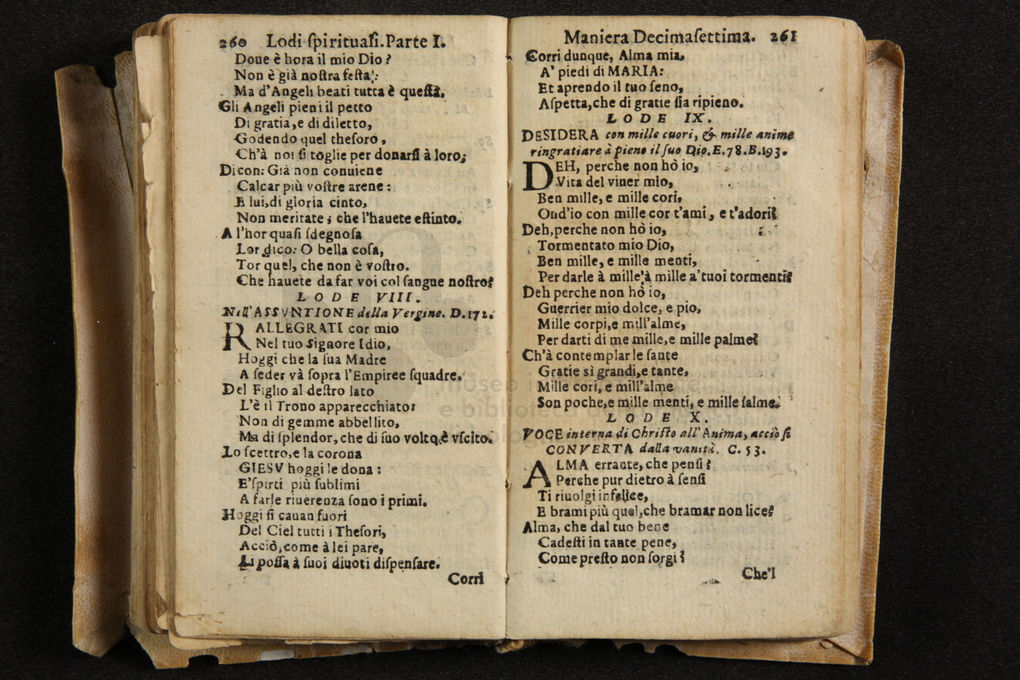 260 Lodi ſpirituali. Parte I.
Doue è hora il mio Dio?
Non è già noſtra feſta:
Ma d'Angeli beati tutta è queſta.
Gli Angeli pieni il petto
Di gratia, e di diletto,
Godendo quel theſoro,
Ch'à noi ſi toglie per donarſi à loro;
Dicon: Già non conuiene
Calcar più voſtre arene:
E lui, di gloria cinto,
Non meritate; che l'hauete eſtinto.
A l'hor quaſi ſdegnoſa
Lor dico: O bella coſa,
Tor quel, che non è voſtro.
Che hauete da far voi col ſangue noſtro?
LODE VIII.
Nell'ASSVNTIONE della Vergine. D.172.
RALLEGRATI cor mio
Nel tuo Signore Idio,
Hoggi che la ſua Madre
A ſeder và ſopra l'Empiree ſquadre.
Del Figlio al deſtro lato
L'è il Trono apparecchiato:
Non di gemme abbellito,
Ma di ſplendor, che di ſuo volto, è vſcito.
Lo ſcettro, e la corona
GIESV hoggi le dona:
E'ſpirti più ſublimi
A farle riuerenza ſono i primi.
Hoggi ſi cauan fuori
Del Ciel tutti i Theſori,
Acciò, come à lei pare,
Li poſſa à ſuoi diuoti diſpenſare.
Corri
Maniera Decimaſettima. 261
Corri dunque, Alma mia,
A' piedi di MARIA:
Et aprendo il tuo ſeno,
Aſpetta, che di gratie ſia ripieno.
LODE IX.
DESIDERA con mille cuori, & mille anime
ringratiare à pieno il ſuo Dio. E.78.B.193.
DEH, perche non hò io,
Vita del viuer mio,
Ben mille, e mille cori,
Ond'io con mille cor t'ami, e t'adori?
Deh, perche non hò io,
Tormentato mio Dio,
Ben mille, e mille menti,
Per darle à mille à mille a' tuoi tormenti?
Deh perche non hò io,
Guerrier mio dolce, e pio,
Mille corpi, e mill'alme,
Per darti di me mille, e mille palme?
Ch'à contemplar le ſante
Gratie sì grandi, e tante,
Mille cori, e mill'alme
Son poche, e mille menti, e mille ſalme.
LODE X.
VOCE interna di Chriſto all'Anima, acciò ſi
CONVERTA dalla vanità. C. 53.
ALMA errante, che penſi?
Perche pur dietro à ſenſi
Ti riuolgi infelice,
E brami più quel, che bramar non lice?
Alma, che dal tuo bene
Cadeſti in tante pene,
Come preſto non ſorgi?
Che'l